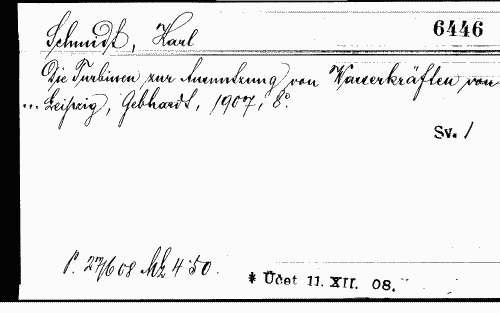 Schmidt, Karl 6446
Die Turbinen zur Ausnutzung von Wasserkräften von
... Leipzig, Gebhardt, 1907, 8°.
Sv. 1
P. 27/6 08 Mk 4·50.
* Účet 11. XII. 08.